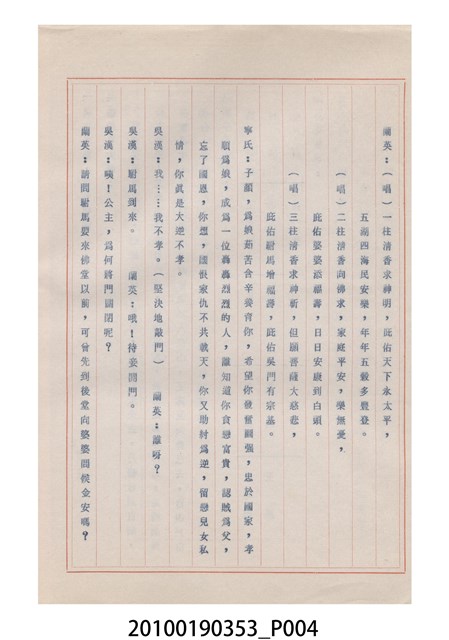 蘭英：（唱）一柱清香求神明，庇佑天下永太平，
五湖四海民安樂，年年五穀多豐登。
（唱）二柱清香向佛求，家庭平安，樂無憂，
庇佑婆婆添福壽，日日安康到白頭。
（唱）三柱清香求神祈，但願菩薩大慈悲，
庇佑駙馬增福壽，庇佑吳門有宗基。
寧氏：子顏，為娘茹苦含辛養育你，希望你發奮圖強，忠於國家，孝
順為娘，成為一位轟轟烈烈的人，誰知道你貪戀富貴，認賊為父，
忘了國恩，你想，國恨家仇不共戴天，你又助紂為逆，留戀兒女私
情，你真是大逆不孝。
吳漢：我……我不孝。（堅決地敲門）　蘭英：誰呀？
吳漢：駙馬到來。　蘭英：哦！待妾開門。
吳漢：咦！公主，為何將門關閉呢？
蘭英：請問駙馬要來佛堂以前，可曾先到後堂向婆婆問候金安嗎？
20100190353_P004